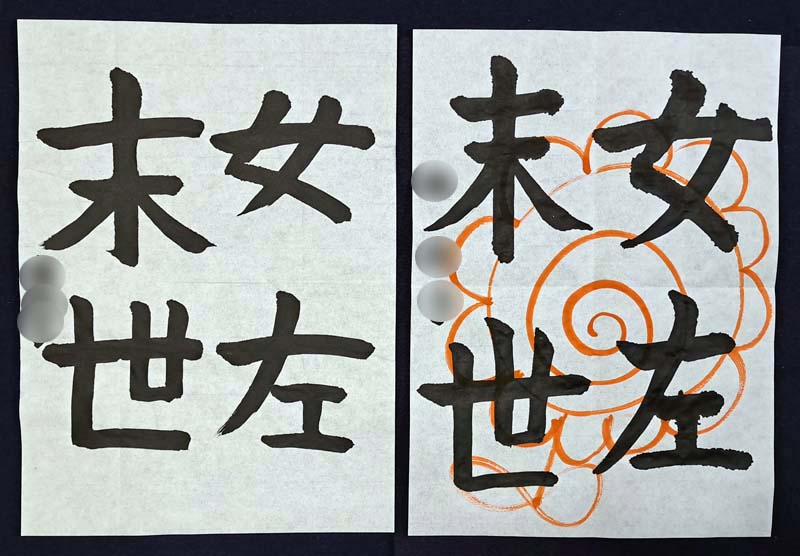 女左
末世
女左
末世